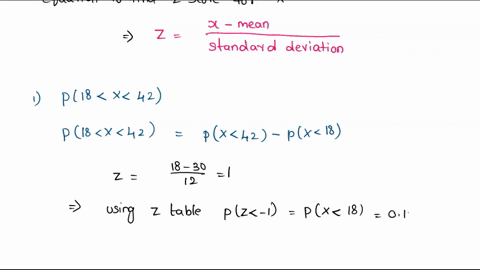 Equation to find z score for x
⇒ Z = x - mean / standard deviation
1) P(18 < x < 42)
P(18 < x < 42) = P(x < 42) - P(x < 18)
z = 18-30 / 12 = 1
⇒ using z table P(z < -1) = P(x < 18) = 0.1